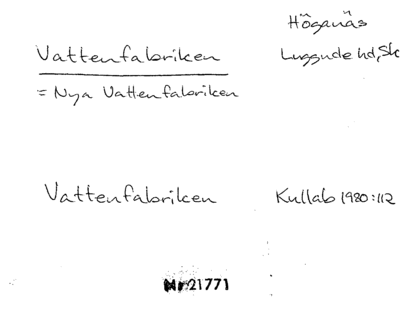 Höganäs
Vattenfabriken Luggude hd, Sk
= Nya Vattenfabriken
Vattenfabriken Kullab 1980:112
Nr 21771